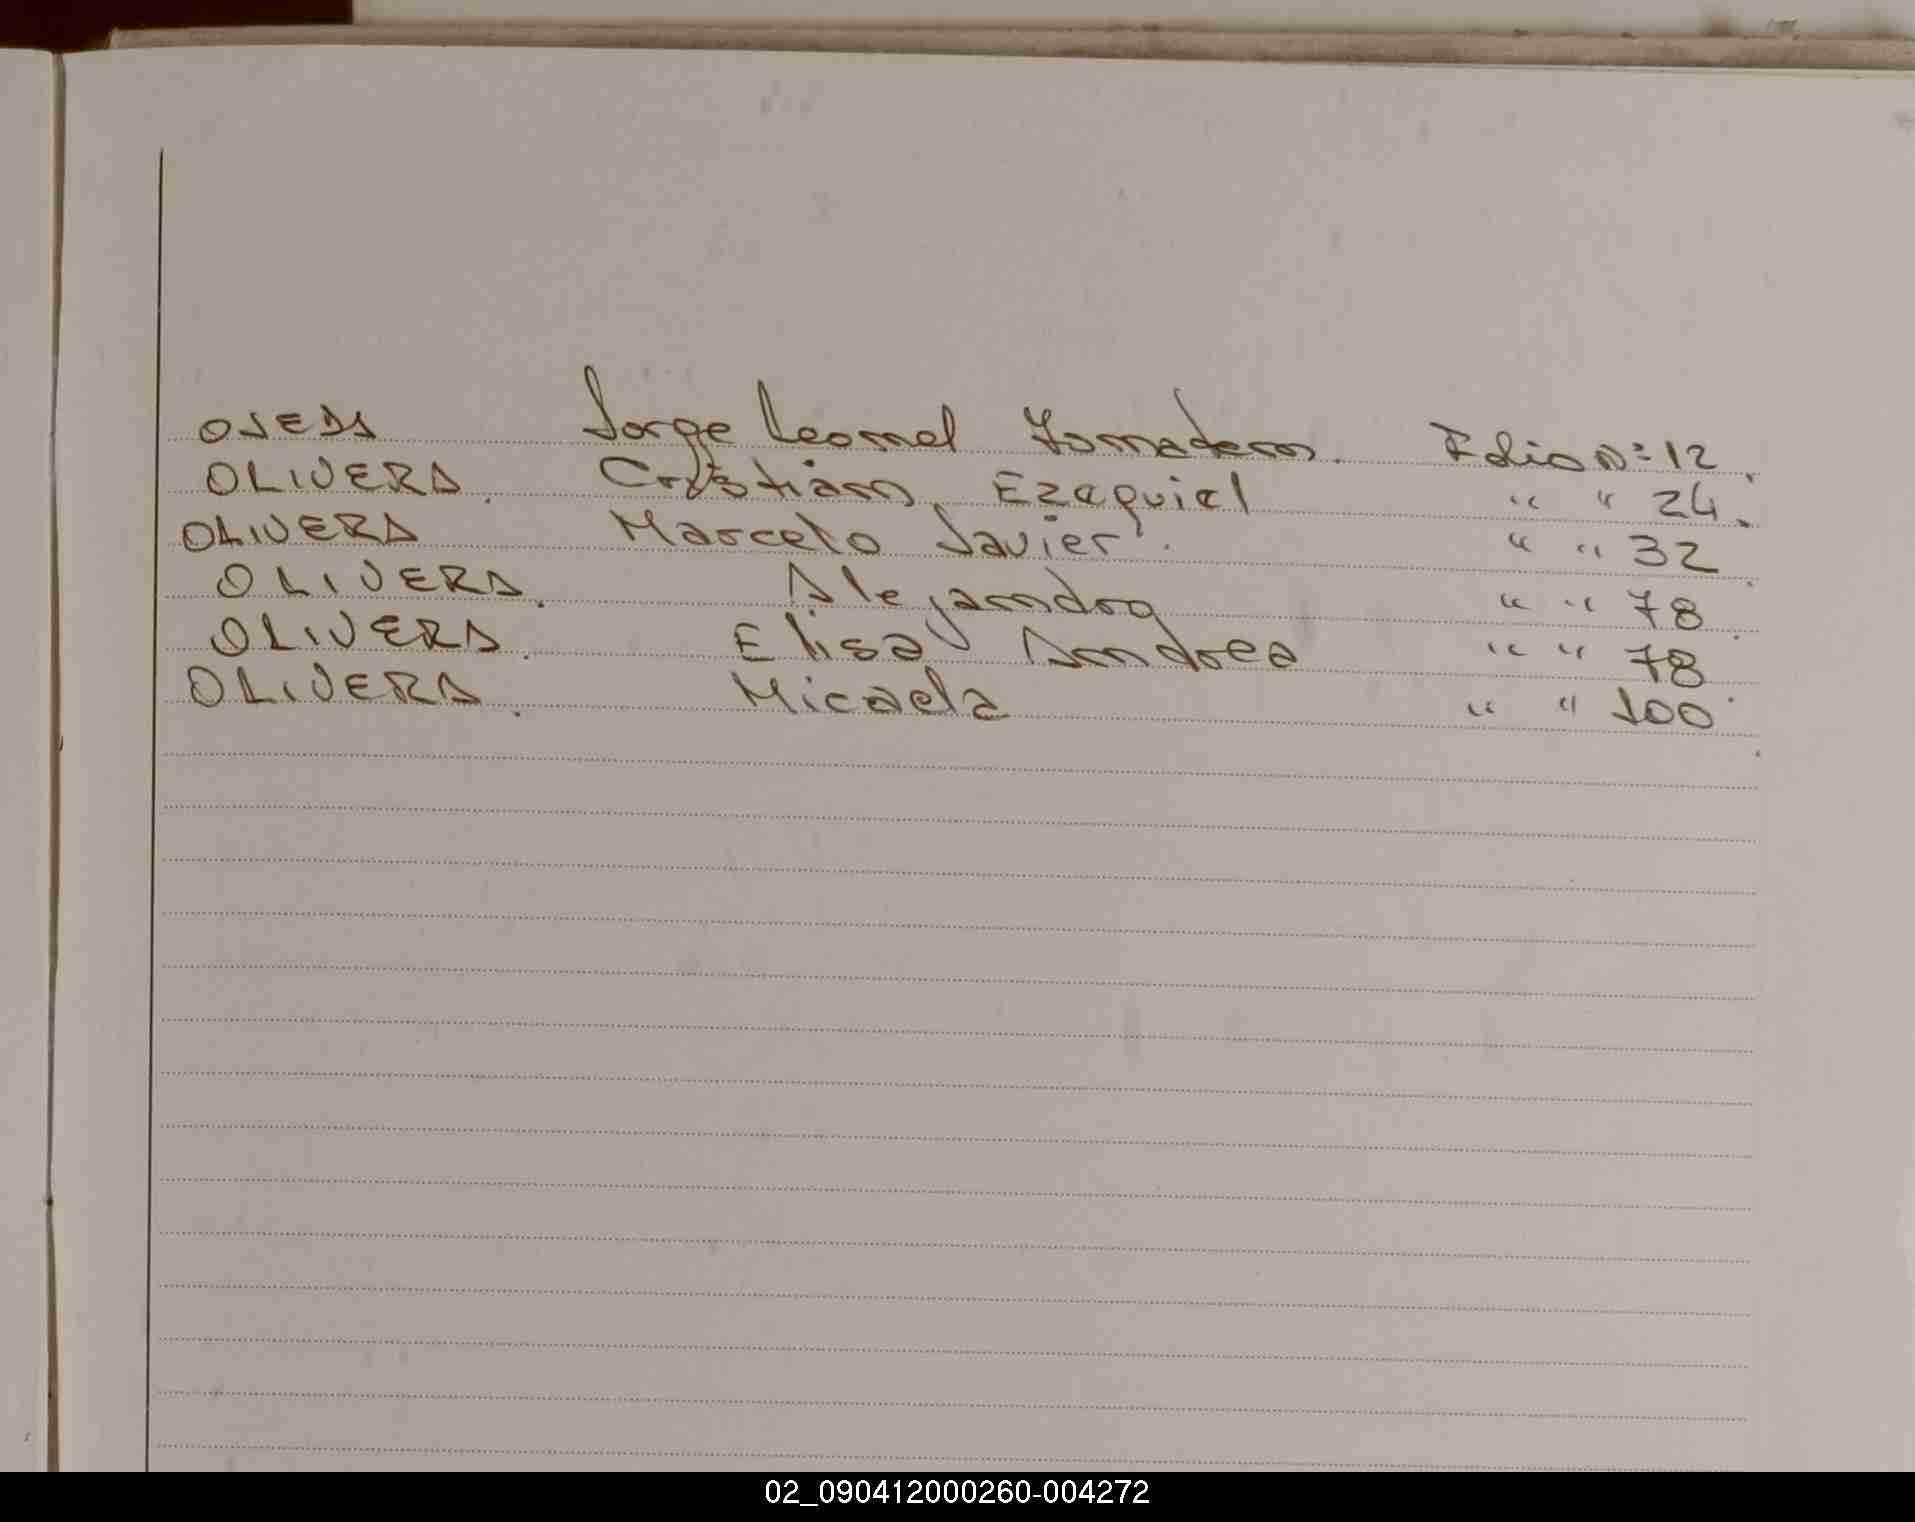 OJEDA Jorge Leonel Jonatan. Folio Nº 12
OLIVERA. Cristian Ezequiel " " 24
OLIVERA Marcelo Javier. " " 32
OLIVERA. Alejandro " " 78
OLIVERA. Elisa Andrea " " 78
OLIVERA. Micaela " " 100
02_090412000260-004272